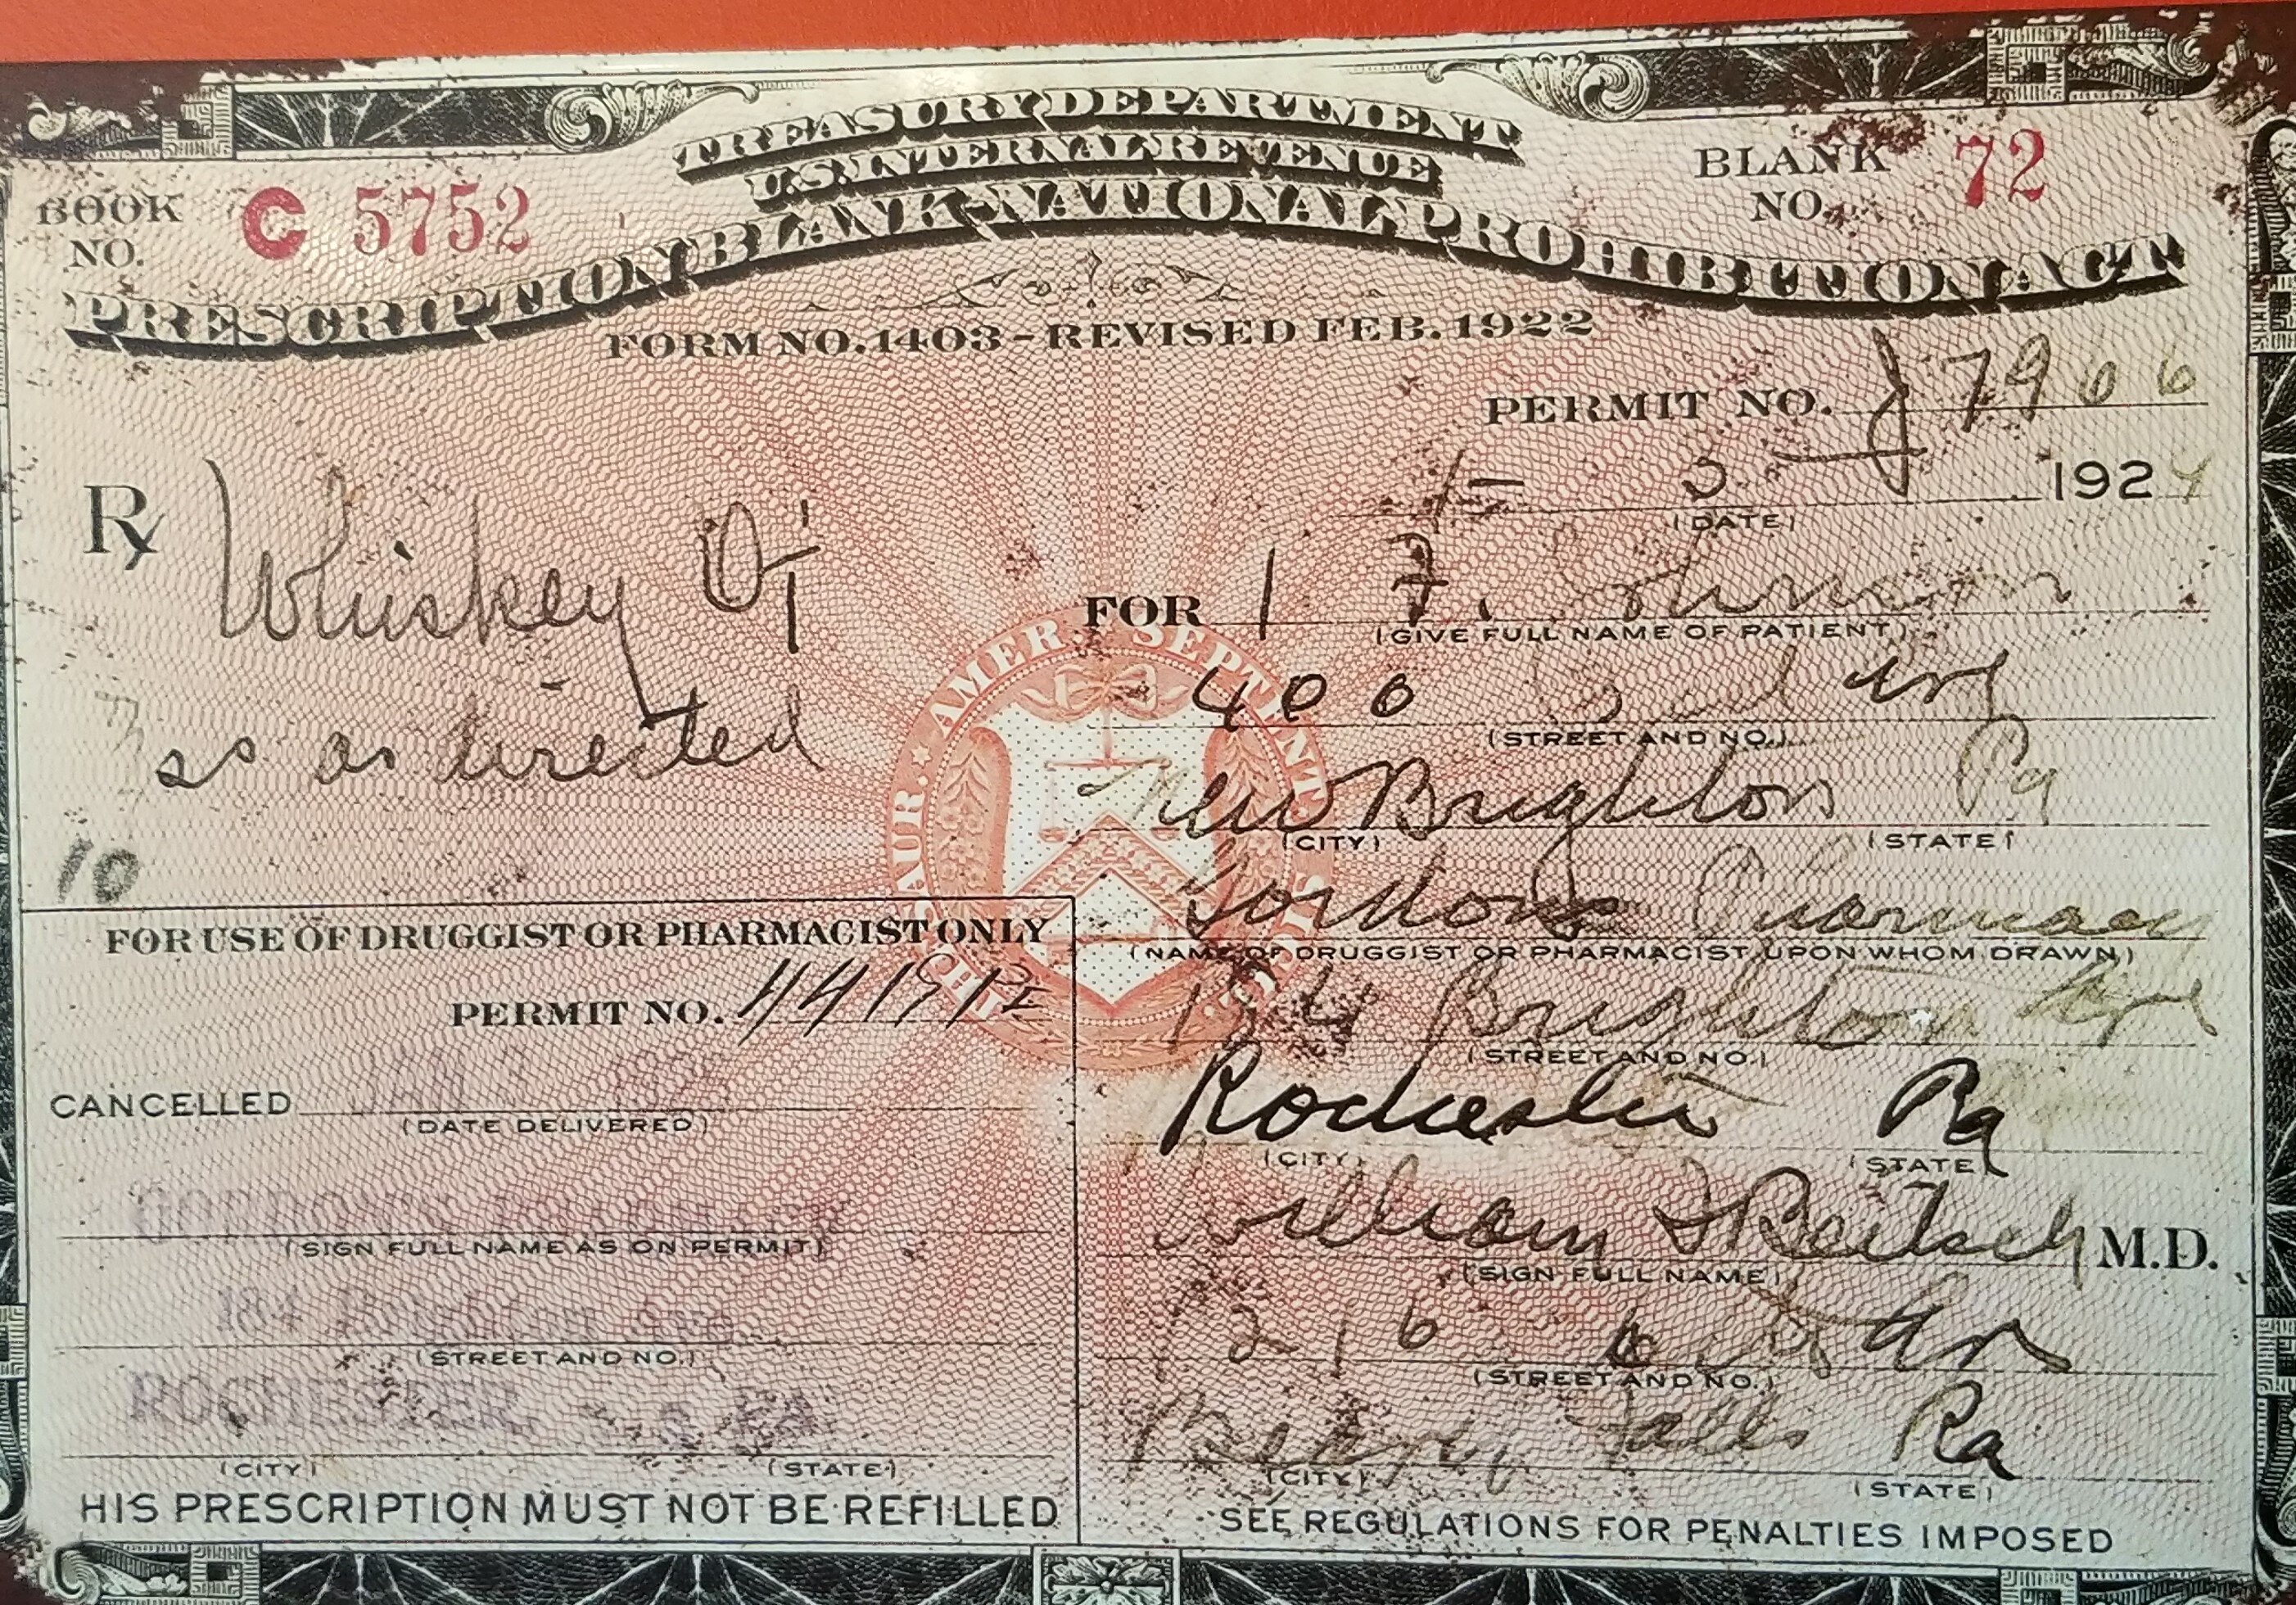 TREASURY DEPARTMENT
U.S. INTERNAL REVENUE
PRESCRIPTION BLANK-NATIONAL PROHIBITION ACT
BOOK NO. C 5752
BLANK NO. 72
FORM NO. 1403 - REVISED FEB. 1922
PERMIT NO. J 7966
192
(DATE)
Rx Whiskey Oi
FOR F. Johnson
(GIVE FULL NAME OF PATIENT)
400 Ave
(STREET AND NO.)
as directed
New Brighton Pa
(CITY) (STATE)
10
Gordons Pharmacy
(NAME OF DRUGGIST OR PHARMACIST UPON WHOM DRAWN)
184 Brighton Ave
(STREET AND NO.)
Rochester Pa
(CITY) (STATE)
William F Beitsch M.D.
(SIGN FULL NAME)
1216 Ave
(STREET AND NO.)
Beaver Falls Pa
(CITY) (STATE)
SEE REGULATIONS FOR PENALTIES IMPOSED
FOR USE OF DRUGGIST OR PHARMACIST ONLY
PERMIT NO.
CANCELLED JAN
(DATE DELIVERED)
GORDON'S PHARMACY
(SIGN FULL NAME AS ON PERMIT)
184 Brighton Ave.
(STREET AND NO.)
ROCHESTER, PA.
(CITY) (STATE)
HIS PRESCRIPTION MUST NOT BE REFILLED